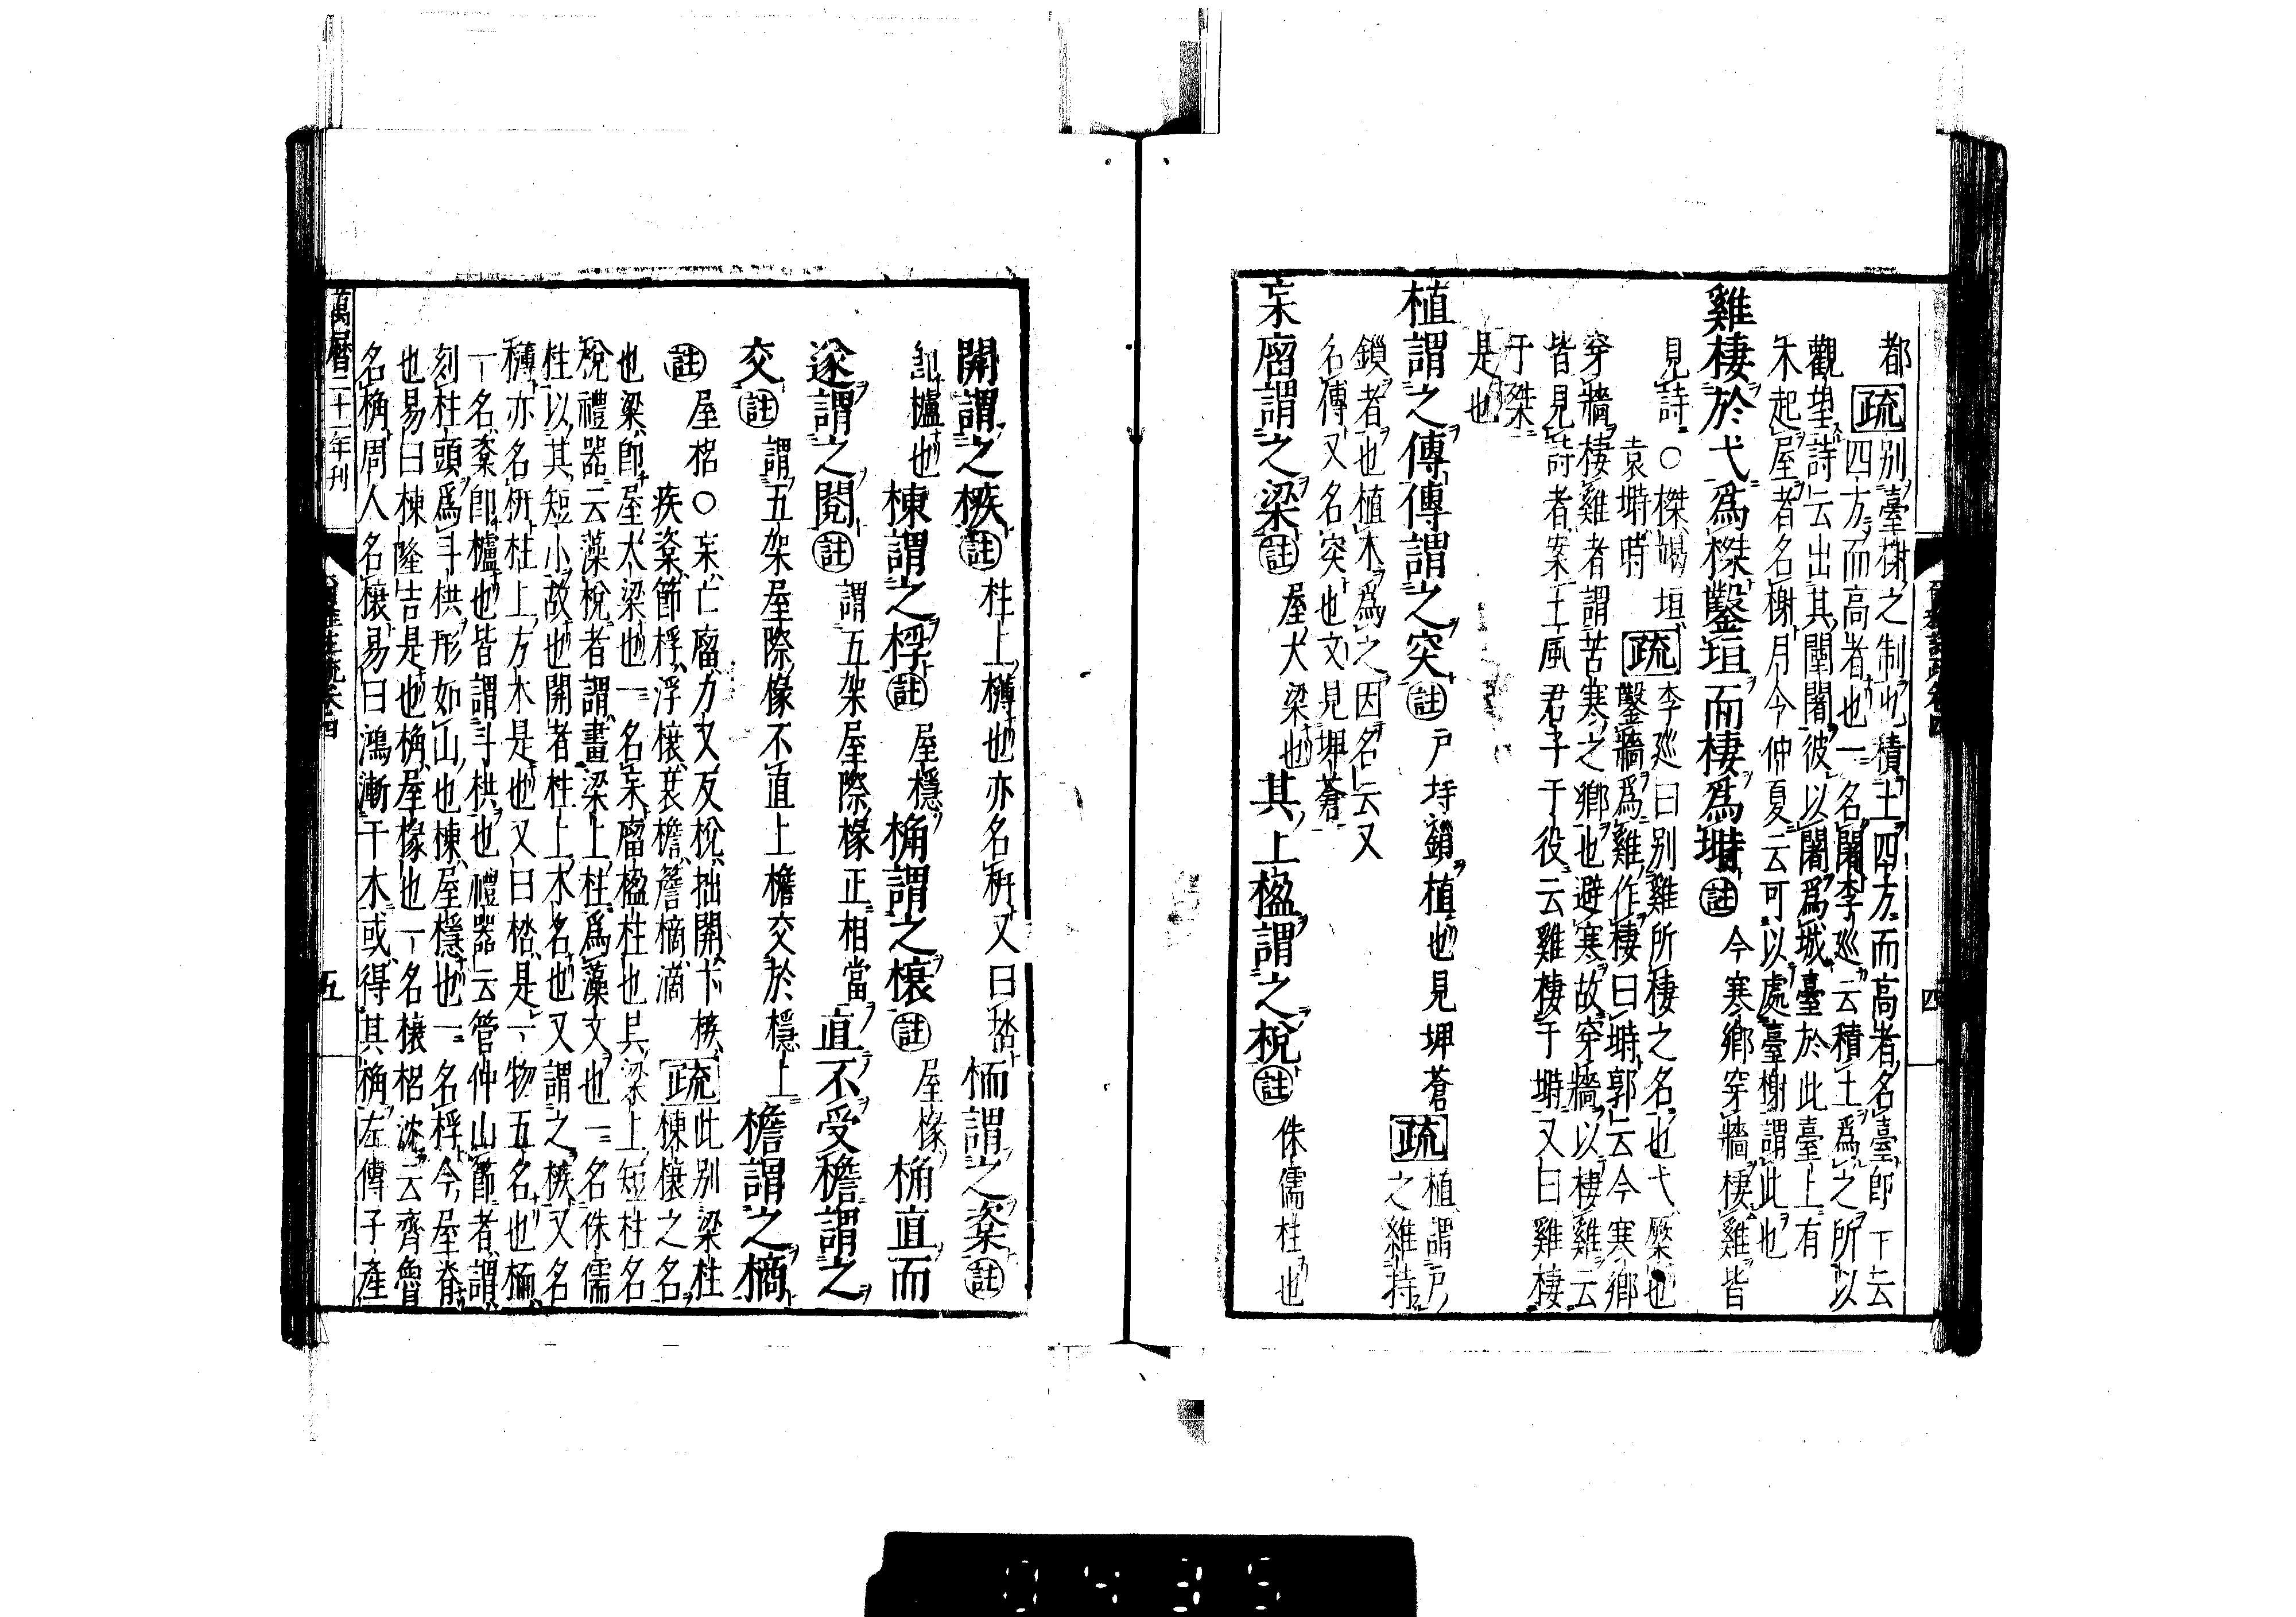 都
疏
別臺榭之制也積土四方而高者名臺即下云
四方而高者也一名闍李巡云積土爲之所以
觀望詩云出其闉闍彼以闍爲城臺於此臺上有
木起屋者名榭月令仲夏云可以處臺榭謂此也
雞棲於弋爲榤鑿垣而棲爲塒註今寒鄉穿牆棲雞皆
見詩○榤竭垣
袁塒時
疏
李巡曰別雞所棲之名也弋橜也
鑿牆爲雞作棲曰塒郭云今寒鄉
穿牆棲雞者謂苦寒之鄉也避寒故穿牆以棲雞云
皆見詩者案王風君子于役云雞棲于塒又曰雞棲
于桀
是也
植謂之傳傳謂之突註戶持鎖植也見埤蒼
疏
植謂戶
之維持
鎖者也植木爲之因名云又
名傳又名突也文見埤蒼
杗廇謂之梁註屋大梁也其上楹謂之梲註侏儒柱也
開謂之槉註柱上欂也亦名枅又曰㭼栭謂之楶註
即櫨也棟謂之桴註屋檼桷謂之榱註屋椽桷直而
遂謂之閱註謂五架屋際椽正相當直不受檐謂之
交註謂五架屋際椽不直上檐交於檼上檐謂之樀
註
屋梠○杗亡廇力又反梲拙開卞槉
疾楶節桴浮榱衰檐簷樀滴
疏
此別梁柱
棟榱之名
也梁即屋大梁也一名杗廇楹柱也其梁上短柱名
梲禮器云藻梲者謂畫梁上柱爲藻文也一名侏儒
柱以其短小故也開者柱上木名也又謂之槉又名
欂亦名枅柱上方木是也又曰㭼是一物五名也栭
一名楶即櫨也皆謂斗栱也禮器云管仲山節者謂
刻柱頭爲斗栱形如山也棟屋檼也一名桴今屋脊
也易曰棟隆吉是也桷屋椽也一名榱梠沈云齊魯
名桷周人名榱易曰鴻漸于木或得其桷左傳子產
萬曆二十一年刊
五
四